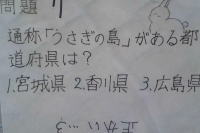 問題
通称「うさぎの島」がある都
道府県は？
1.宮城県 2.香川県 3.広島県
正かい…3